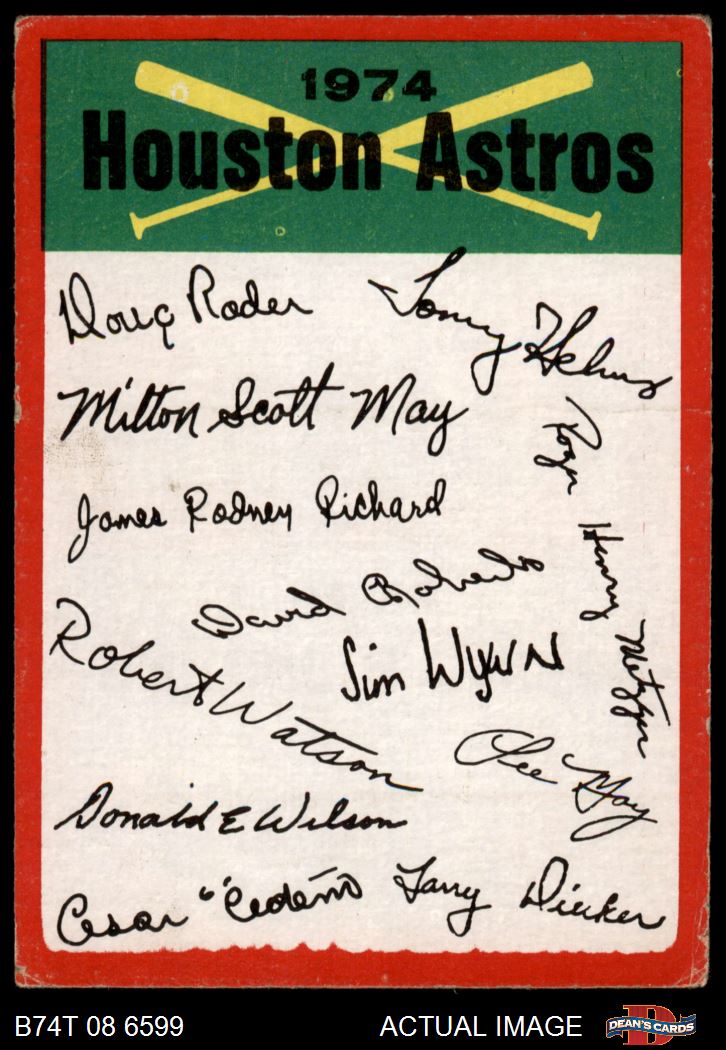 1974
Houston Astros
Doug Rader
Tommy Helms
Milton Scott May
Roger Henry Metzger
James Rodney Richard
David Roberts
Robert Watson
Jim Wynn
Lee May
Donald E Wilson
Cesar "Cedeño
Larry Dierker
B74T 08 6599
ACTUAL IMAGE
D
DEAN'S CARDS